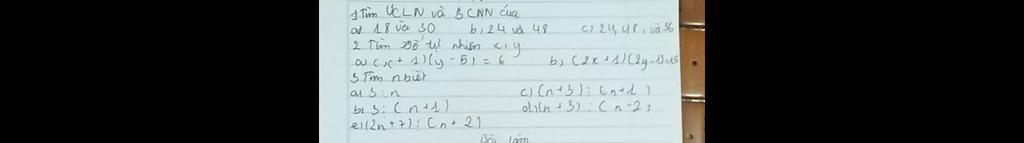 1 Tìm ƯCLN và BCNN của
a) 18 và 30 b, 24 và 48 c) 24, 48, và 36
2 Tìm số tự nhiên x, y
a) (x + 1)(y - 5) = 6 b, (2x + 1)(2y - 1) = 15
3 Tìm n biết
a) 3 : n c) (n + 3) : (n + 1)
b) 3 : (n + 1) d) (n + 3) : (n - 2)
e) (2n + 7) : (n + 2)
Bài làm